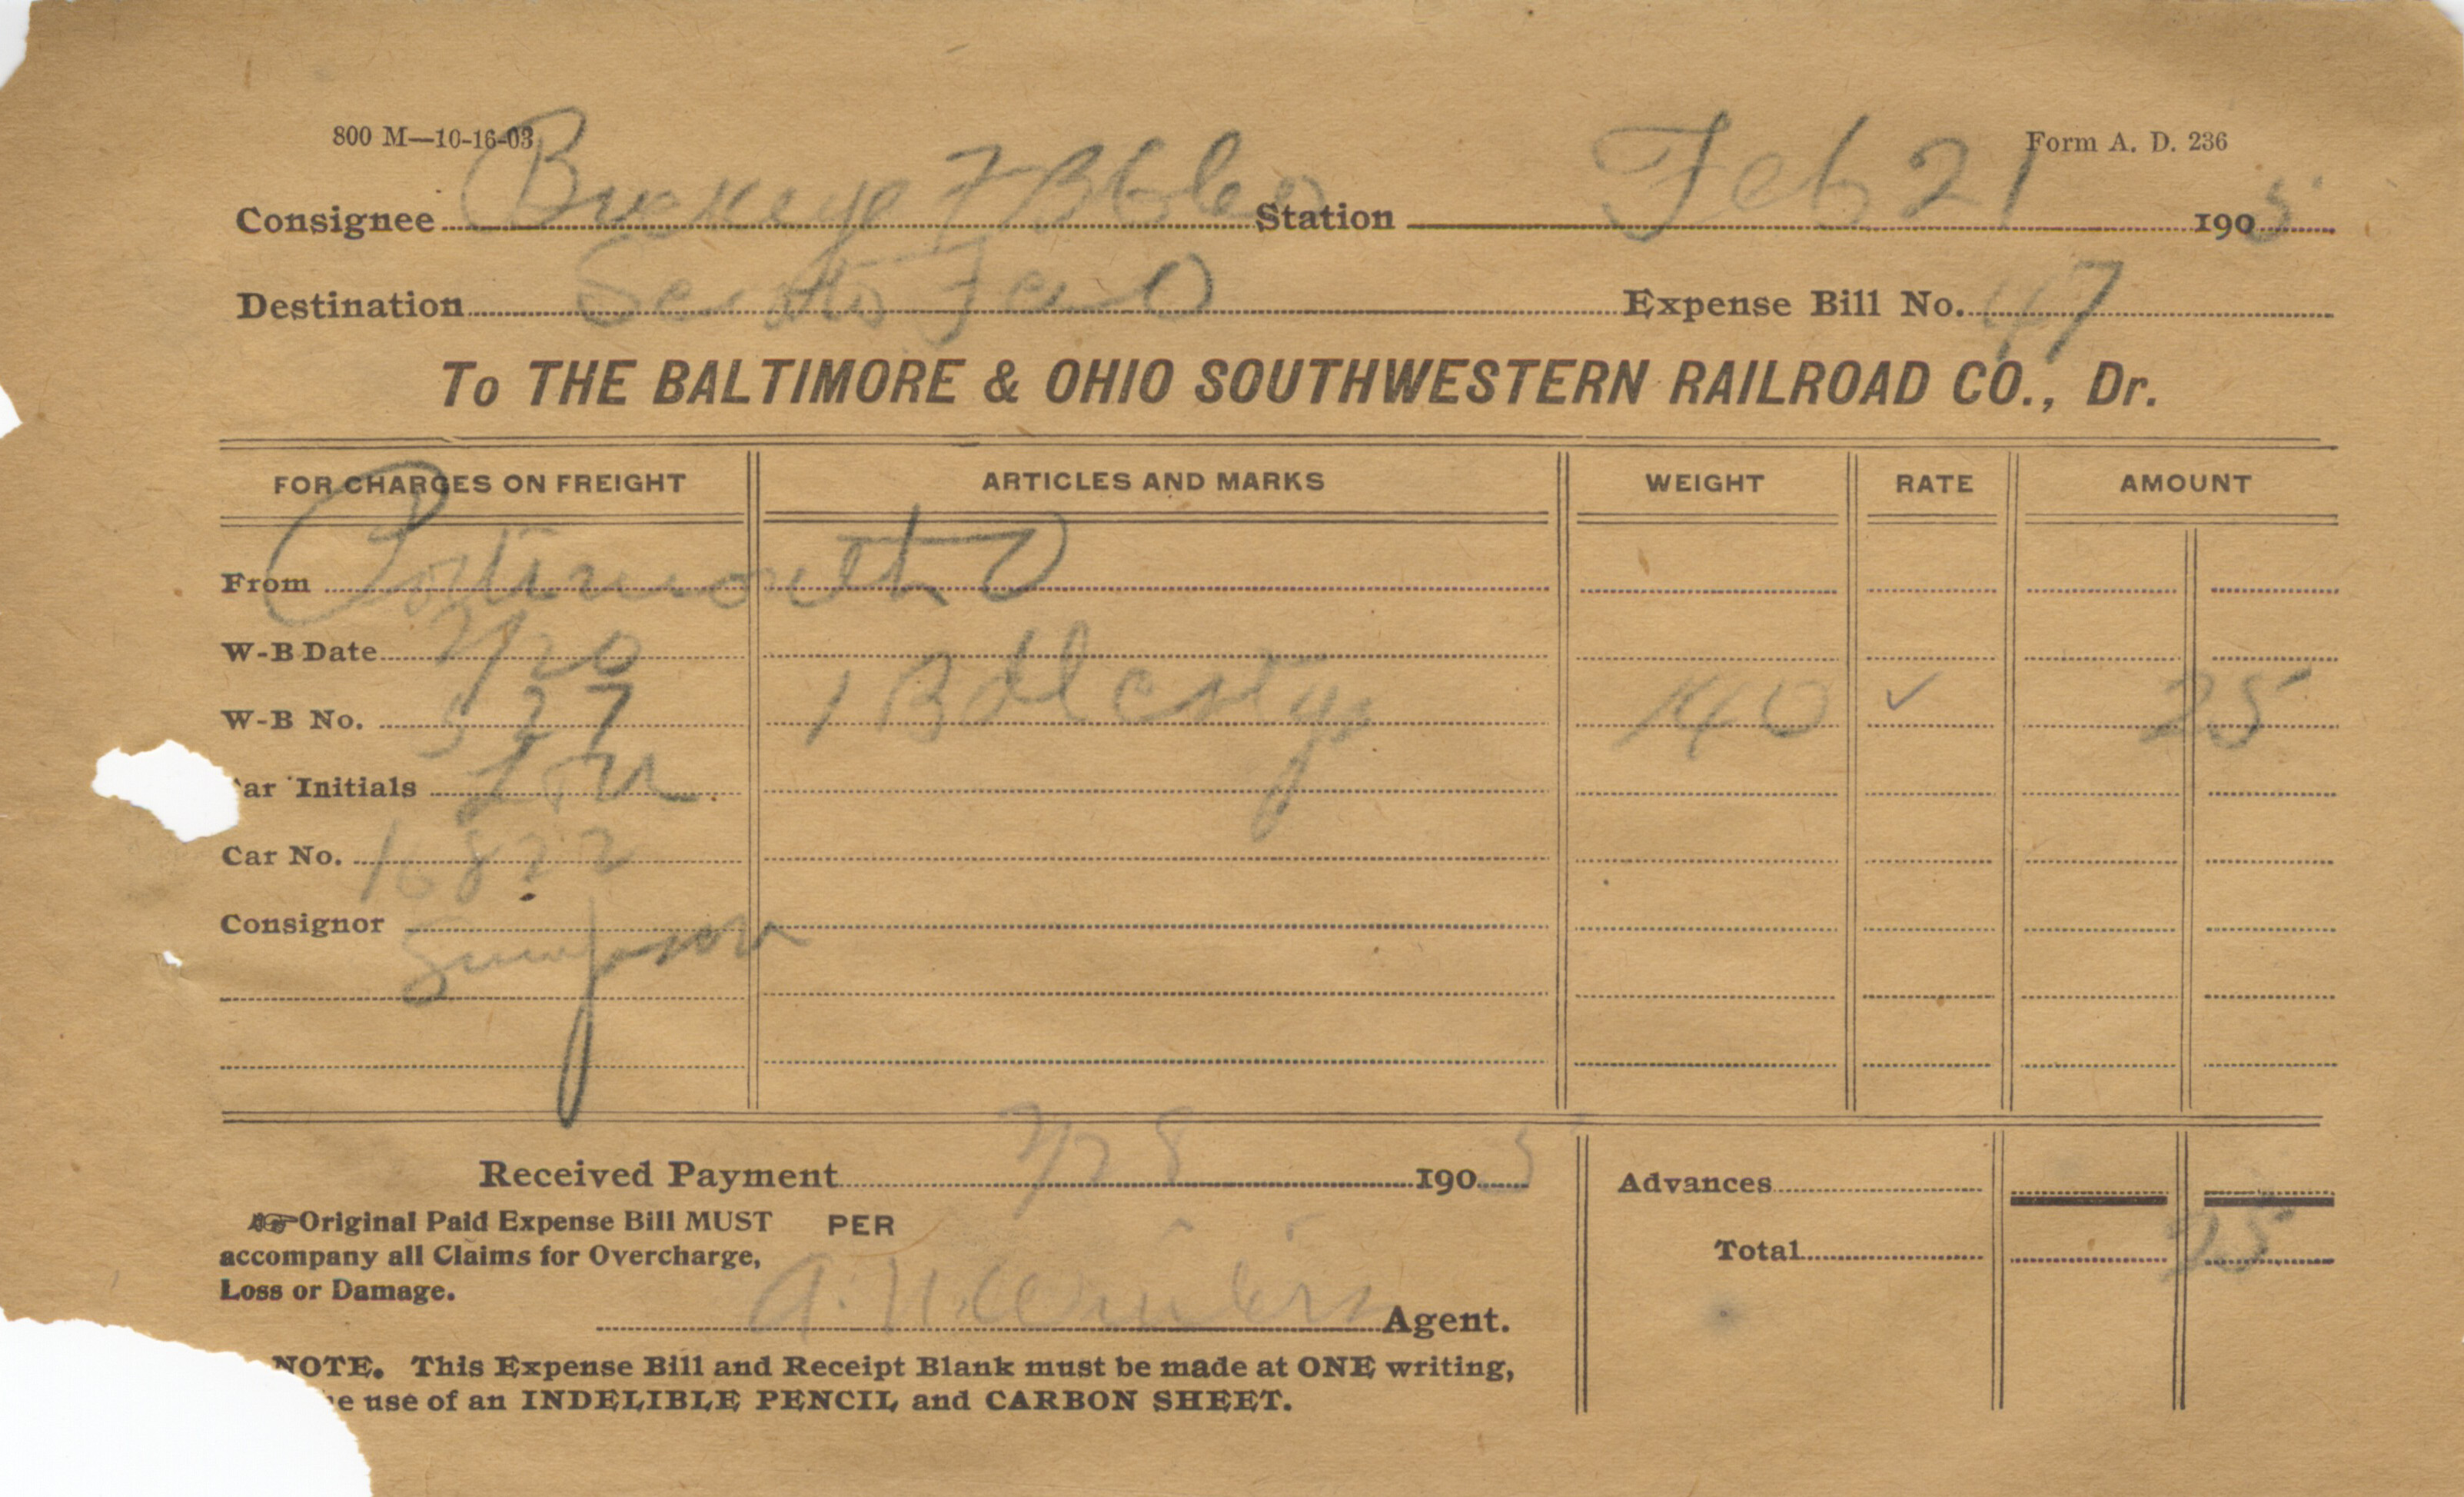 800 M—10-16-03
Form A. D. 236
Consignee Buckeye F B Co Station Feb 21 1905
Destination Scioto Fce O Expense Bill No. 47
To THE BALTIMORE & OHIO SOUTHWESTERN RAILROAD CO., Dr.
FOR CHARGES ON FREIGHT ARTICLES AND MARKS WEIGHT RATE AMOUNT
From Portsmouth O
W-B Date 2/20
W-B No. 527 1 Bdl cstgs 140 ✓ 25
ar Initials
Car No. 16822
Consignor Simpson
Received Payment 2/28 1905 Advances
☞Original Paid Expense Bill MUST PER
accompany all Claims for Overcharge,
Total 25
Loss or Damage.
A. Agent.
NOTE. This Expense Bill and Receipt Blank must be made at ONE writing,
e use of an INDELIBLE PENCIL and CARBON SHEET.